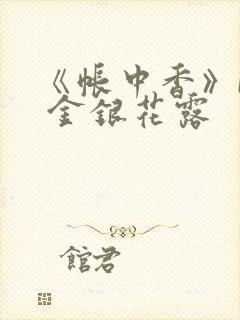 《帐中香》
金銀花露
館君